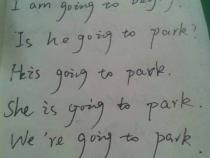 I am going to
Is he going to park?
He is going to park.
She is going to park.
We're going to park